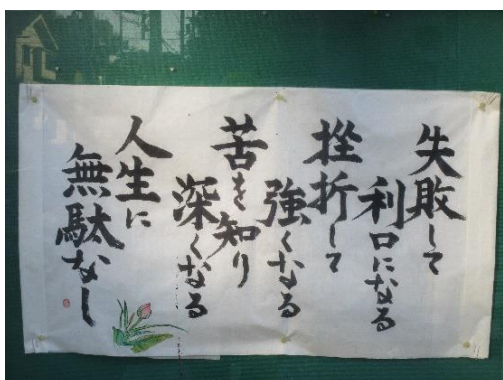 失敗して
利口になる
挫折して
強くなる
苦を知り
深くなる
人生に
無駄なし